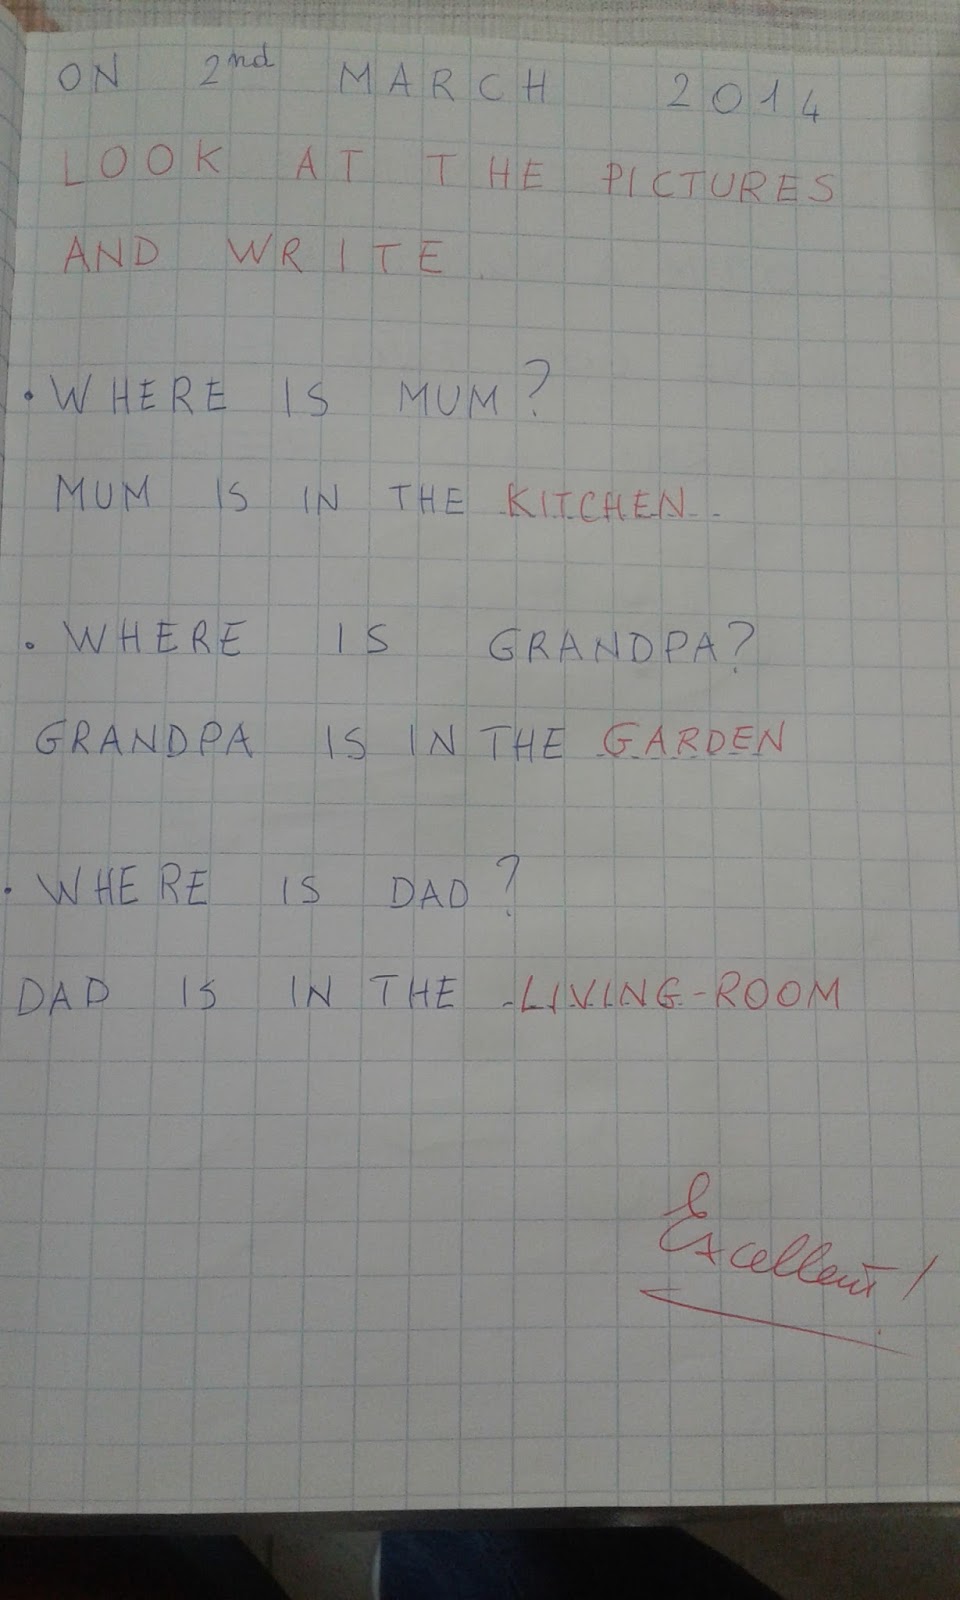 ON 2nd MARCH 2014
LOOK AT THE PICTURES
AND WRITE.
• WHERE IS MUM?
MUM IS IN THE KITCHEN
• WHERE IS GRANDPA?
GRANDPA IS IN THE GARDEN
• WHERE IS DAD?
DAD IS IN THE LIVING-ROOM
Excellent!